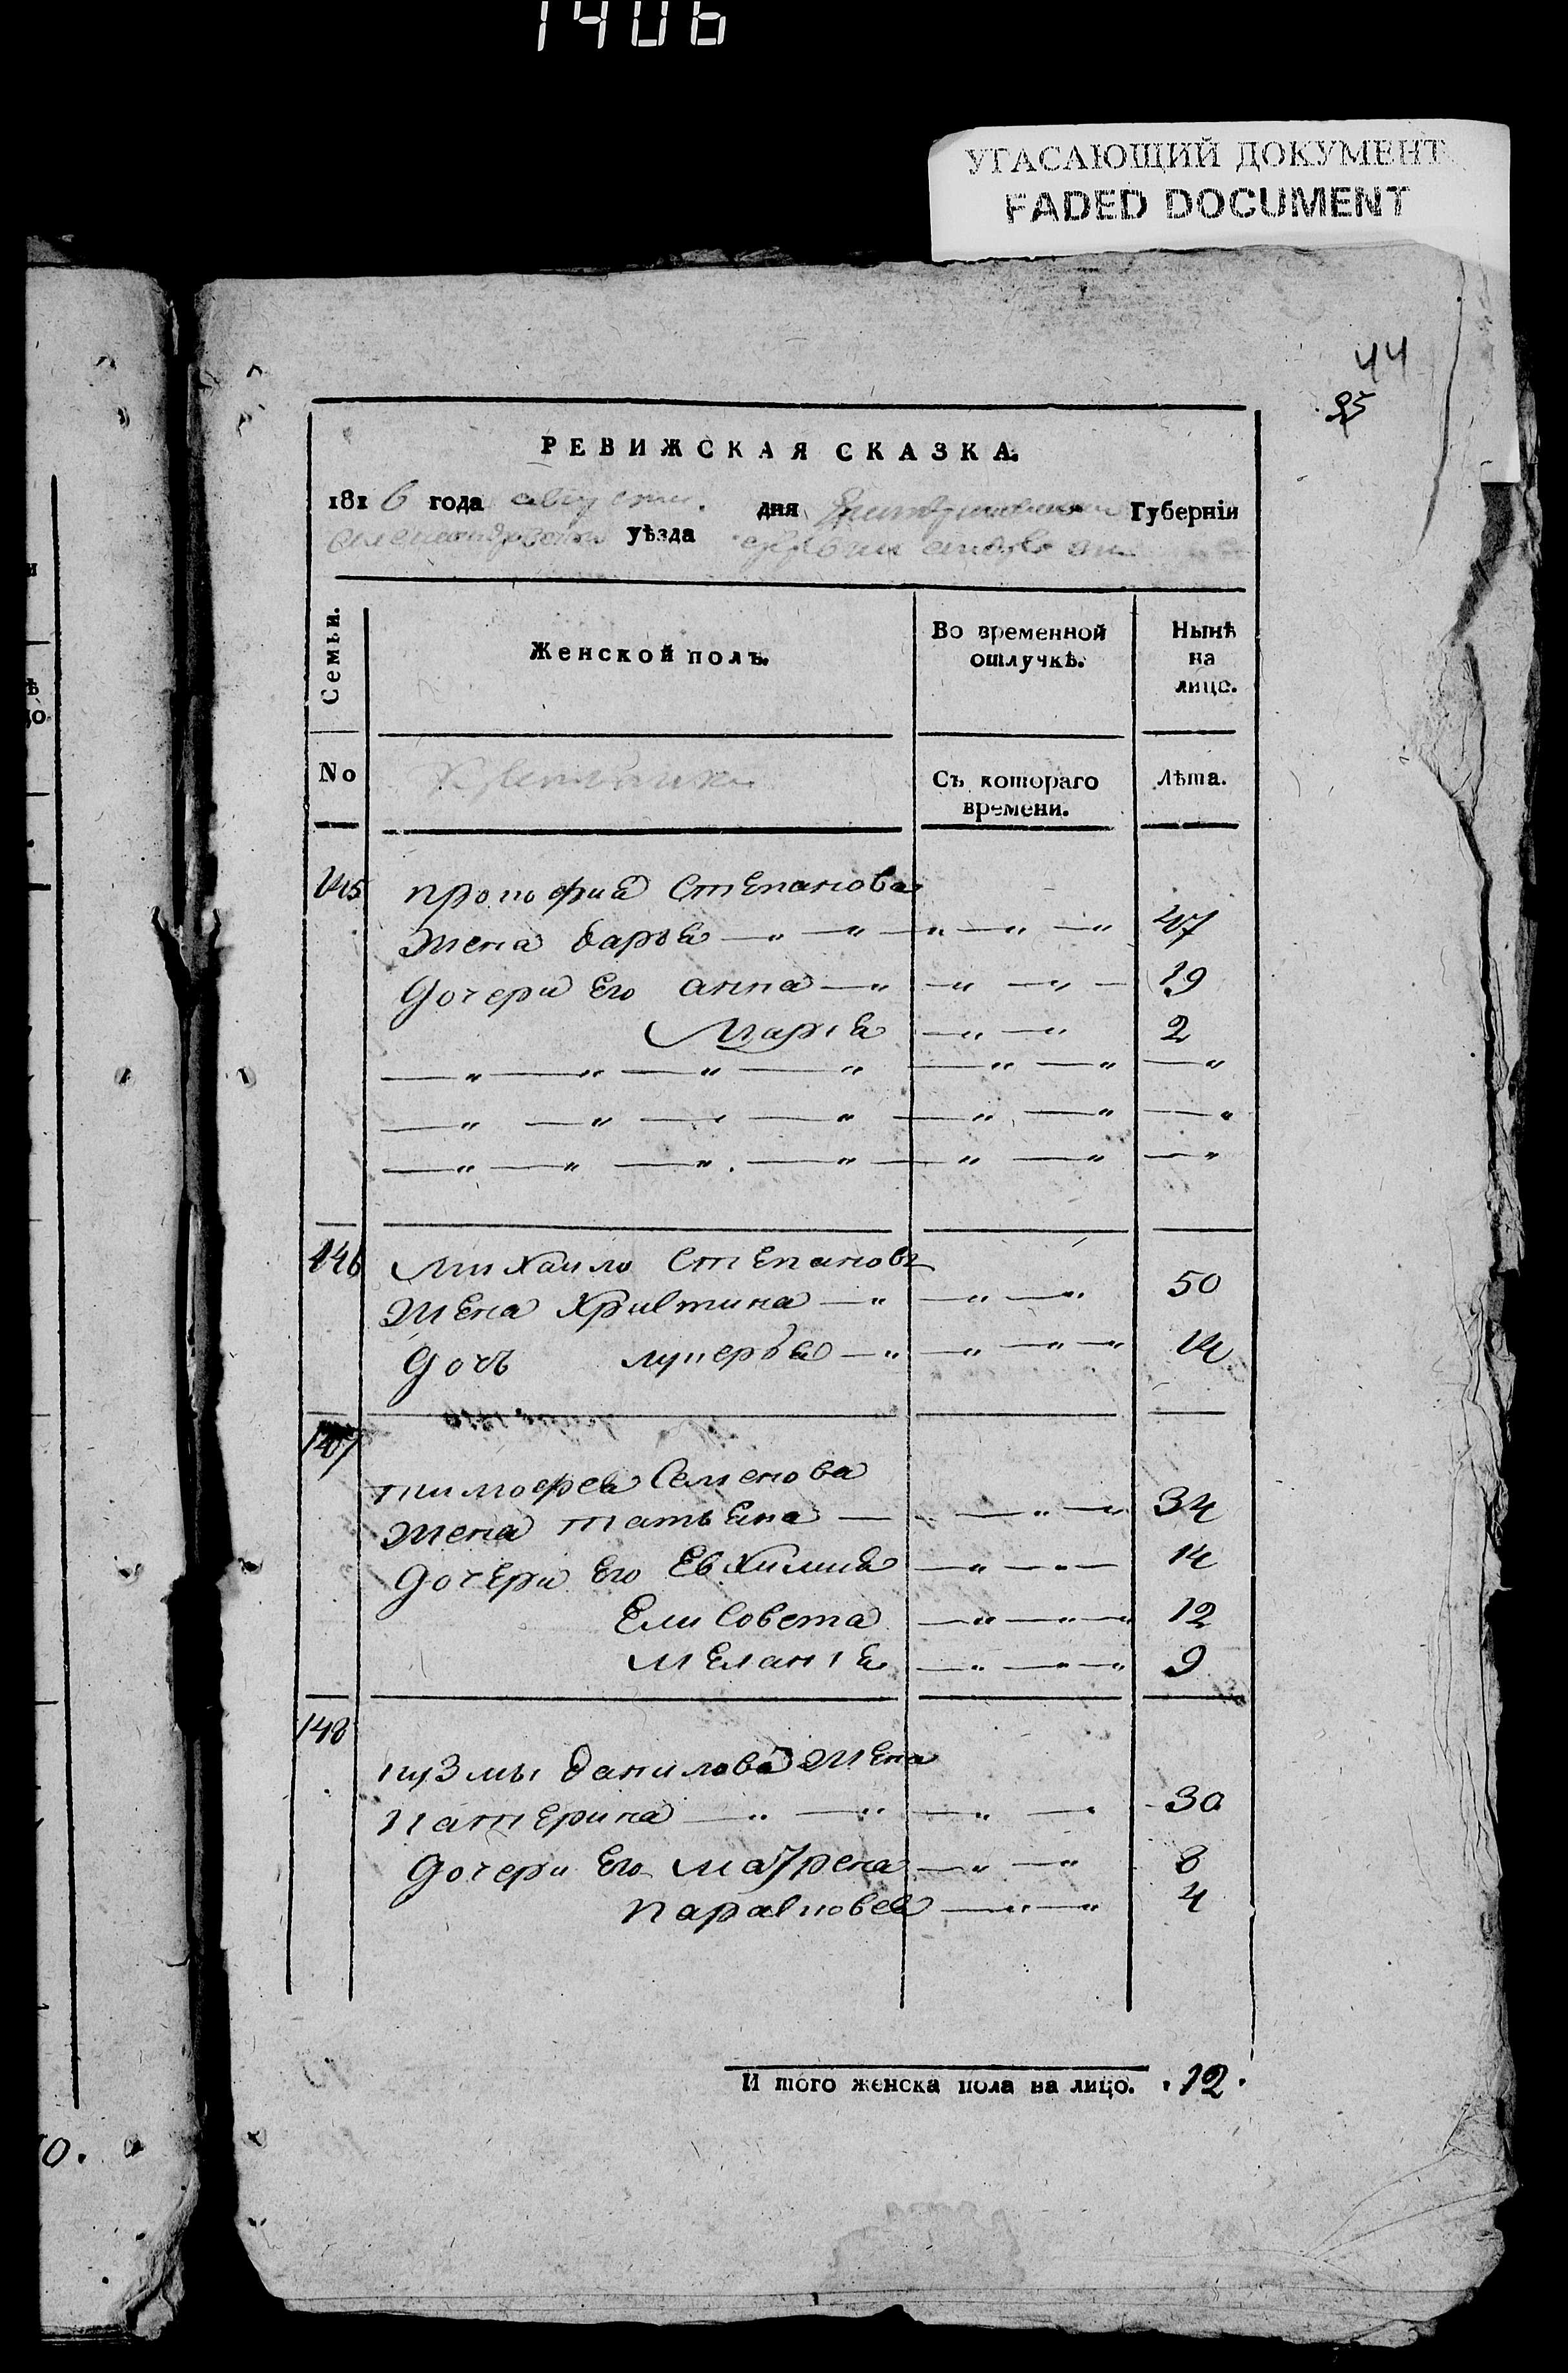 1406
УГАСАЮЩИЙ ДОКУМЕНТ
FADED DOCUMENT
44
95
РЕВИЖСКАЯ СКАЗКА.
1816 года августа дня Губерніи
уѣзда
Семьи.
Женской полъ.
Во временной отлучкѣ.
Нынѣ на лице.
No
Съ котораго времени.
Лѣта.
145 прокофиа Степанова
жена дарья 47
дочери его анна 19
Мария 2
146 Михаило Степановъ
жена Христина 50
дочь лукерья 14
147
тимофеа Семенова
жена татьяна 34
дочери его Евхимия 14
Елисовета 12
Меланiя 9
148
кузмы данилова жена
катерина 30
дочери его матрена 8
парасковея 4
И того женска пола на лицо. 12.
0.